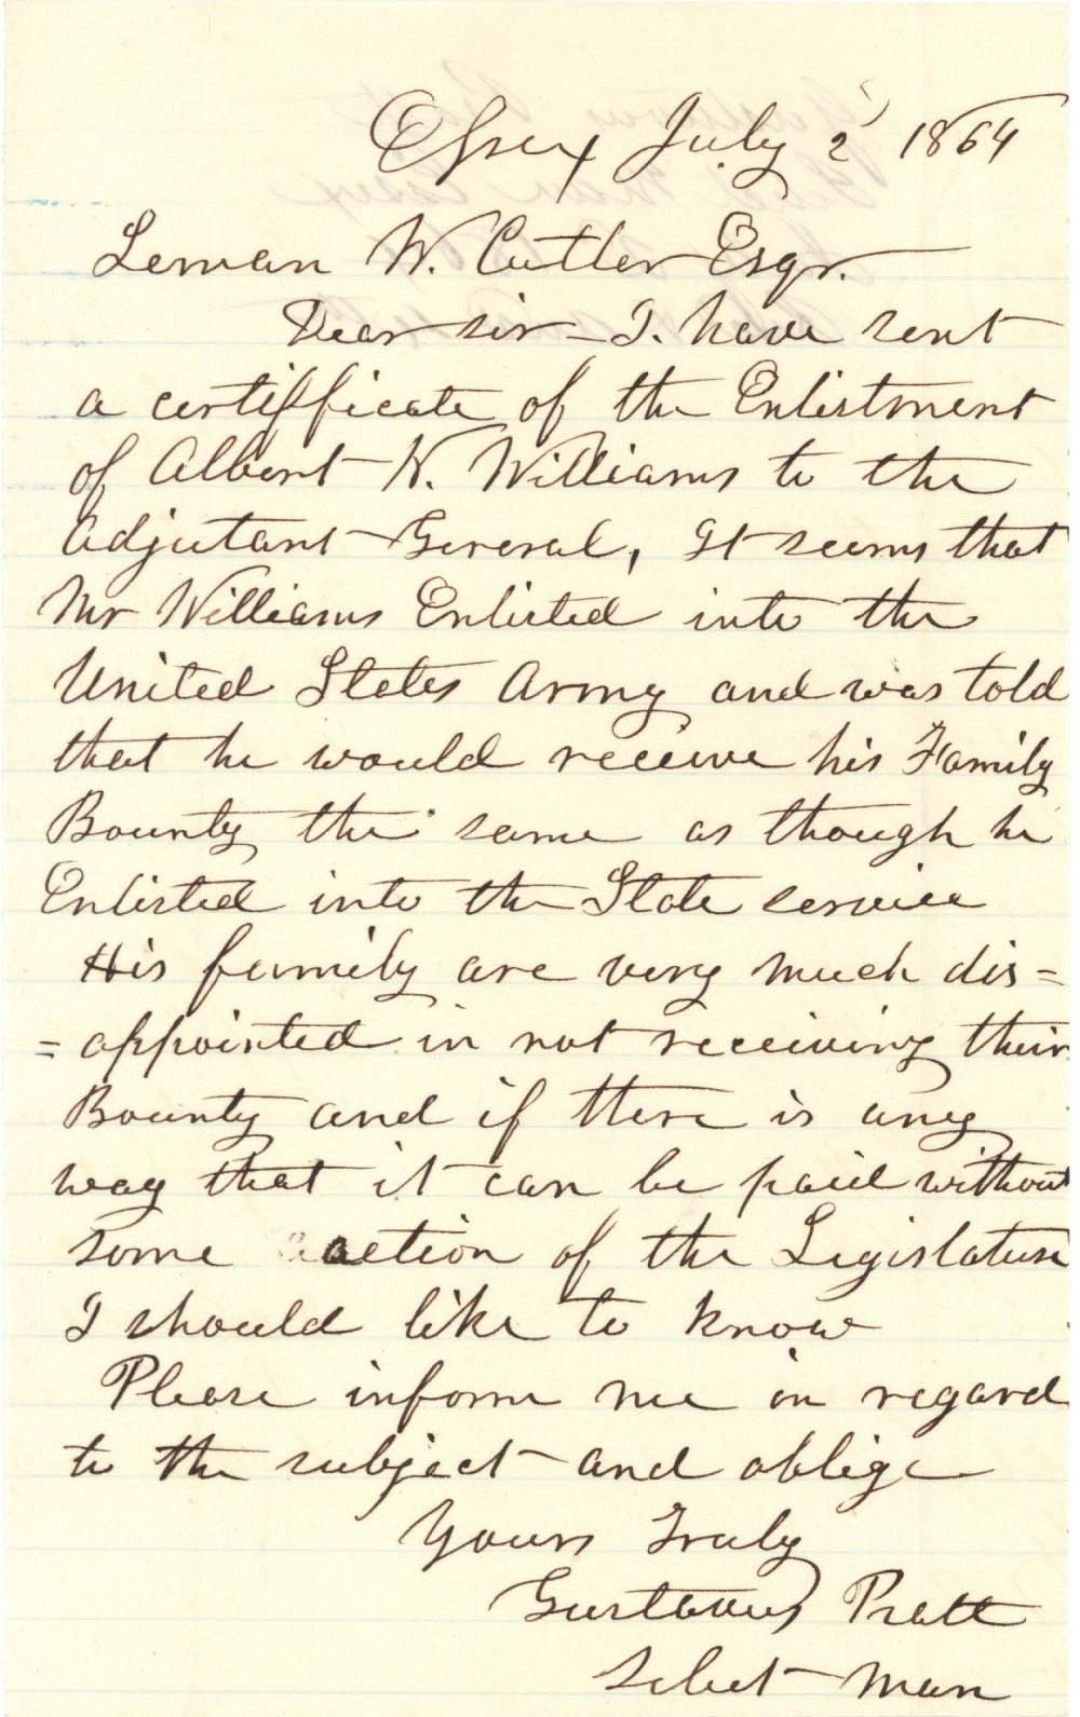 Essex July 2 1864
Leman W. Cutler Esqr.
Dear sir - I. have sent
a certifficate of the Enlistment
of Albert W. Williams to the
Adjutant General, It seems that
Mr Williams Enlisted into the
United States Army and was told
that he would receive his Family
Bounty the same as though he
Enlisted into the State service
His family are very much dis=
=appointed in not receiving their
Bounty and if there is any
way that it can be paid without
some action of the Legislature
I should like to know
Please inform me in regard
to the subject and oblige
Yours Truly
Gustavus Pratt
Select Man